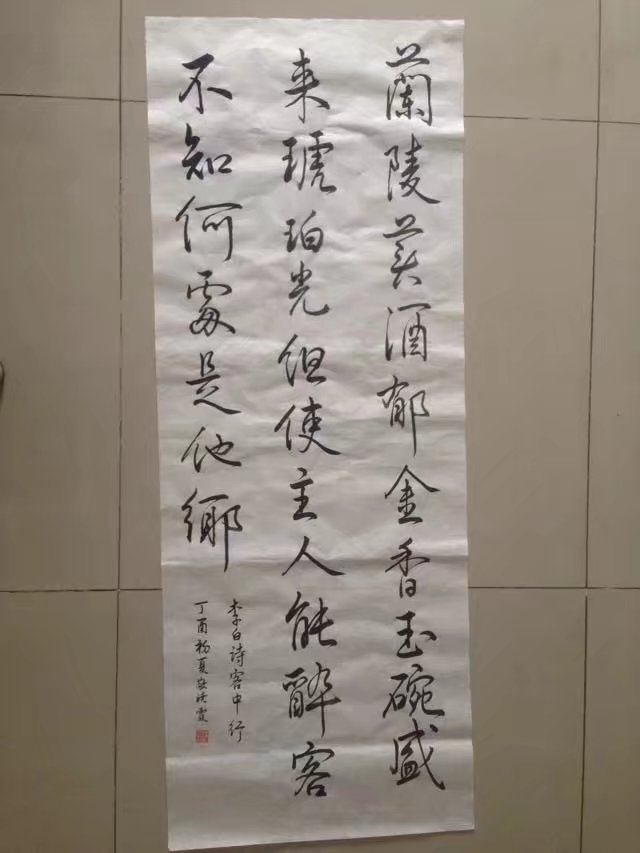 蘭陵美酒郁金香玉碗盛
来琥珀光但使主人能醉客
不知何處是他鄉
李白诗客中行
丁酉初夏